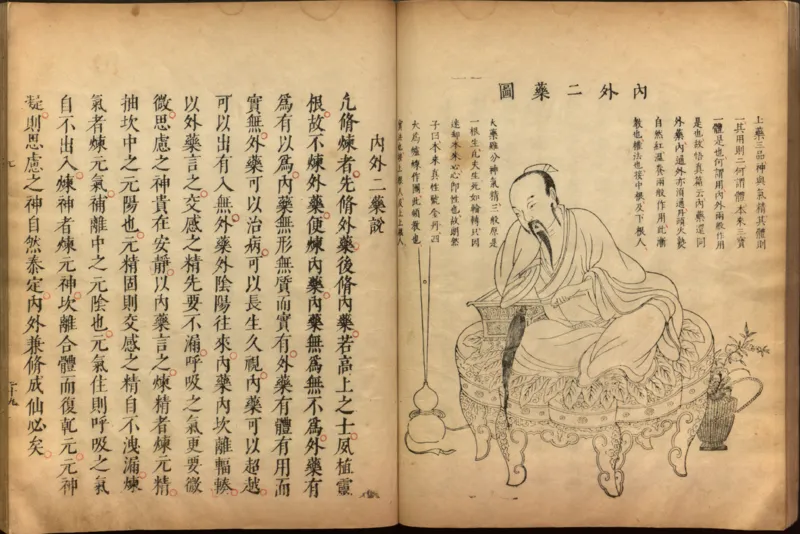 內外二藥圖
上藥三品神與氣精其體則
一其用則二何謂體本來三寶
一體是也何謂用內外兩般作用
是也故悟真篇云內藥還同
外藥內通外亦須通丹頭
自然紅溫養兩般作用此漸
教也權法也接中根及下根人
大藥雖分神氣精三般原是
一根生 生死如輪轉只因
迷却本來心心即性也故朗然
子曰本來真性號金丹四
大為爐煉作團此頓教也
內外二藥說
凡脩煉者先脩外藥後脩內藥若高上之士夙植靈
根故不煉外藥便煉內藥內藥無為無不為外藥有
為有以為內藥無形無質而實有外藥有體有用而
實無外藥可以治病可以長生久視內藥可以超越
可以出有入無外藥外陰陽往來內藥內坎離輻輳
以外藥言之交感之精先要不漏呼吸之氣更要微
微思慮之神貴在安靜以內藥言之煉精者煉元精
抽坎中之元陽也元精固則交感之精自不洩漏煉
氣者煉元氣補離中之元陰也元氣住則呼吸之氣
自不出入煉神者煉元神坎離合體而復乾元元神
凝則思慮之神自然泰定內外兼脩成仙必矣